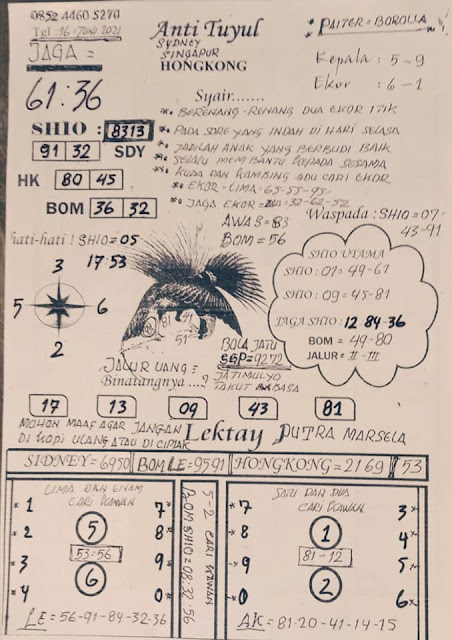 0852 4460 5270
Tgl : 16 = Juni 2021
JAGA =
61:36
Anti Tuyul
SYDNEY
SINGAPUR
HONGKONG
* PAITER = BOROLLA
Kepala : 5-9
Ekor : 6-1
Syair.......
** BERENANG-RENANG DUA EKOR ITIK
** PADA SORE YANG INDAH DI HARI SELASA
** JADILAH ANAK YANG BERBUDI BAIK
** SELALU MEMBANTU KEPADA SESAMA
** KUDA DAN KAMBING ADU CARI EKOR
** EKOR = LIMA = 65-55-95
** JAGA EKOR = DUA = 32-62-52
SHIO : 8313
91 32 SDY
HK 80 45
BOM 36 32
AWAS = 83
BOM = 56
Waspada : SHIO = 07
43-91
hati-hati ! SHIO = 05
17 53
3
5 6
2
81
51
JALUR UANG =
Binatangnya ...?
BOLA JATU
SGP = 9272
JATIMULYO
TAKUT BABASA
SHIO UTAMA
SHIO : 01 = 49-61
SHIO : 09 = 45-81
JAGA SHIO : 12 84-36
BOM = 49-80
JALUR = II - III
17 13 09 43 81
MOHON MAAF AGAR JANGAN
DI KOPI ULANG ATAU DI CIPLAK
Lektay PUTRA MARSELA
SIDNEY = 6950 BOM LE = 9591 HONGKONG = 2169 53
LIMA DAN ENAM
CARI KAWAN
* 1 7 *
* 2 5 8 *
53=56
* 3 9 *
* 4 6 0 *
LE = 56-91-84-32-36
5-2 CARI KAWAN
BOM SHIO = 08:32:56
SATU DAN DUA
CARI KAWAN
* 7 3 *
* 8 1 4 *
81-12
* 9 5 *
* 0 2 6 *
AK = 81-20-41-14-15